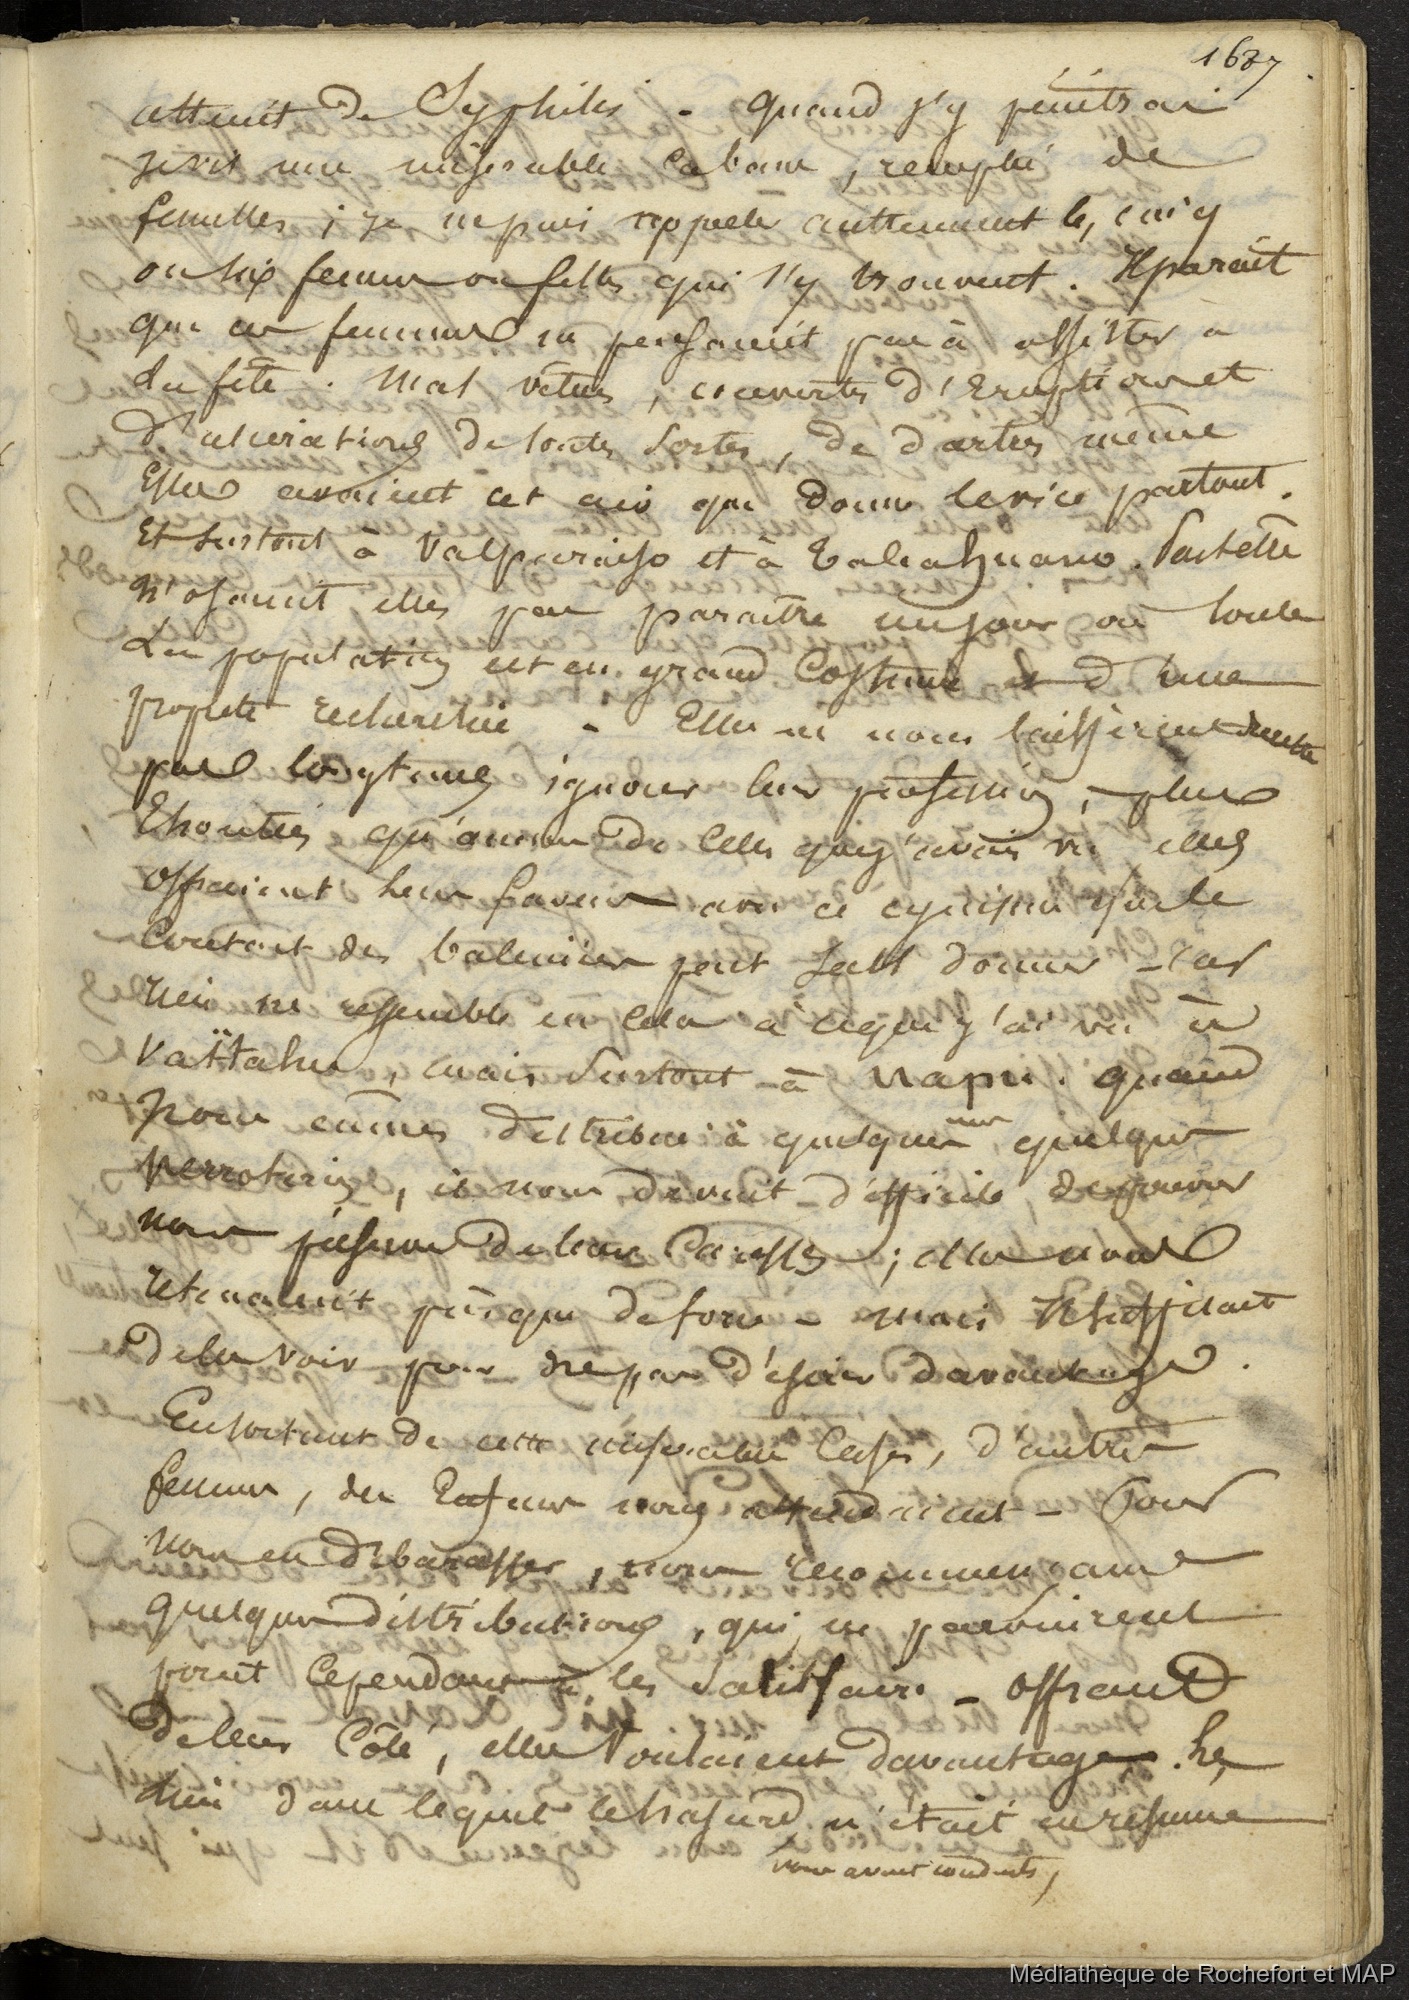 1687
atteint de Syphilis - quand j'y pénétrai
je vis une misérable cabane, remplie de
femelles ; je ne puis appeler autrement les cinq
ou six femmes ou filles qui s'y trouvent. Il parait
que ces femmes ne pensaient pas à assister à
la fête. Mal vêtues, couvertes d'Eruptions et
d'ulcérations de toutes sortes, de dartres même
Elles avaient cet air que donne le vice partout.
Et surtout à Valparaiso et à Talcahuano. Peut être
N'osaient elles pas paraître un jour où toute
La population est en grand Costume et d'une
propreté recherchée - Elles ne nous laissèrent ensuite
pas longtems ignorer leur profession, plus
Ehontées qu'aucune de celles que j'avais vu elles
offraient leur faveurs avec ce cynisme que le
Contact des baleiniers peut seul donner - car
rien ne ressemble en cela à ce que j'ai vu à
Vaïtahu, mais surtout à Napu. quand
Nous eûmes distribué à quelques unes quelques
verroteries, il nous devint difficile de pouvoir
nous préserver de leurs Caresses ; elles nous
retenaient presque de force - mais Il suffisait
de les voir pour ne pas désirer davantage.
En sortant de cette misérable Case, d'autres
femmes, des Enfans nous attendaient - Pour
nous en débarasser, nous recommençames
quelques distributions, qui ne parvinrent
point Cependant à les Satisfaire - offrant
de leur Côté, elles voulaient davantage. Le
lieu dans lequel le hasard n'était en résumé
nous avait conduits,
Médiathèque de Rochefort et MAP